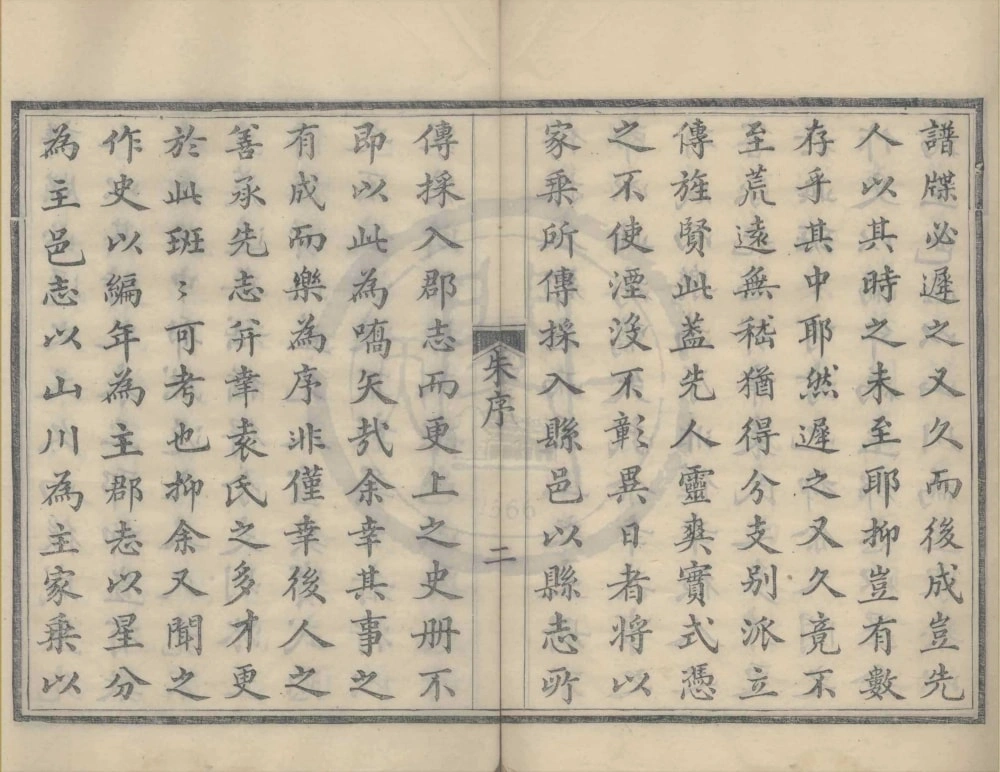 譜牒必遲之又久而後成豈先
人以其時之未至耶抑豈有數
存乎其中耶然遲之又久竟不
至荒遠無嵇猶得分支別派立
傳旌賢此蓋先人靈爽實式憑
之不使湮沒不彰異日者將以
家乘所傳採入縣邑以縣志所
朱序
二
傳採入郡志而更上之史册不
即以此為嚆矢㢤余幸其事之
有成而樂為序非僅幸後人之
善承先志并幸袁氏之多才更
於此班〻可考也抑余又聞之
作史以編年為主郡志以星分
為主邑志以山川為主家乘以